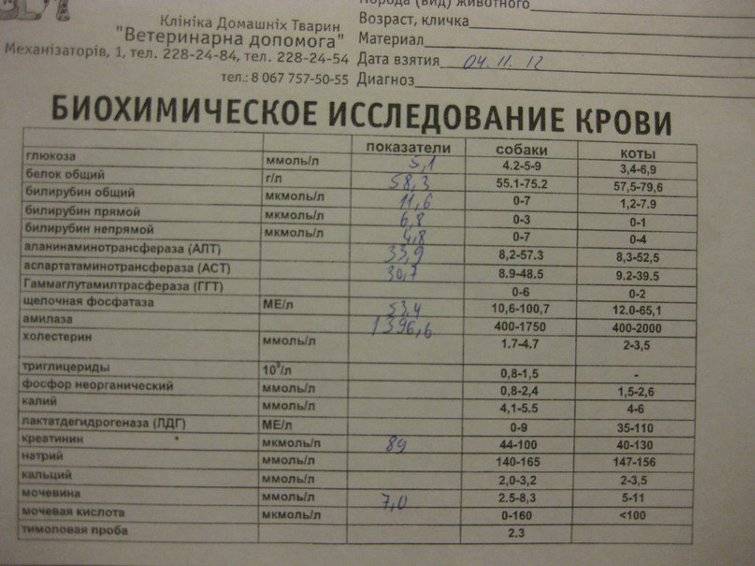 Клініка Домашніх Тварин
"Ветеринарна допомога"
Механізаторів, 1, тел. 228-24-84, тел. 228-24-54
тел.: 8 067 757-50-55
Порода (вид) животного
Возраст, кличка
Материал
Дата взятия 04.11.12
Диагноз
БИОХИМИЧЕСКОЕ ИССЛЕДОВАНИЕ КРОВИ
показатели собаки коты
глюкоза ммоль/л 5,1 4.2-5-9 3,4-6,9
белок общий г/л 58,3 55.1-75.2 57,5-79,6
билирубин общий мкмоль/л 11,6 0-7 1,2-7.9
билирубин прямой мкмоль/л 6,8 0-3 0-1
билирубин непрямой мкмоль/л 4,8 0-7 0-4
аланинаминотрансфераза (АЛТ) 33,9 8,2-57.3 8,3-52,5
аспартатаминотрансфераза (АСТ) 30,7 8.9-48.5 9.2-39.5
Гаммаглутамилтрасфераза (ГГТ) 0-6 0-2
щелочная фосфатаза МЕ/л 53,4 10,6-100,7 12.0-65,1
амилаза 1396,6 400-1750 400-2000
холестерин ммоль/л 1.7-4.7 2-3,5
триглицериды 10³/л 0,8-1,5 -
фосфор неорганический ммоль/л 0,8-2,4 1,5-2,6
калий ммоль/л 4,1-5.5 4-6
лактатдегидрогеназа (ЛДГ) МЕ/л 0-9 35-110
креатинин мкмоль/л 89 44-100 40-130
натрий ммоль/л 140-165 147-156
кальций ммоль/л 2,0-3,2 2-3,5
мочевина ммоль/л 7,0 2.5-8,3 5-11
мочевая кислота мкмоль/л 0-160 <100
тимоловая проба 2.3